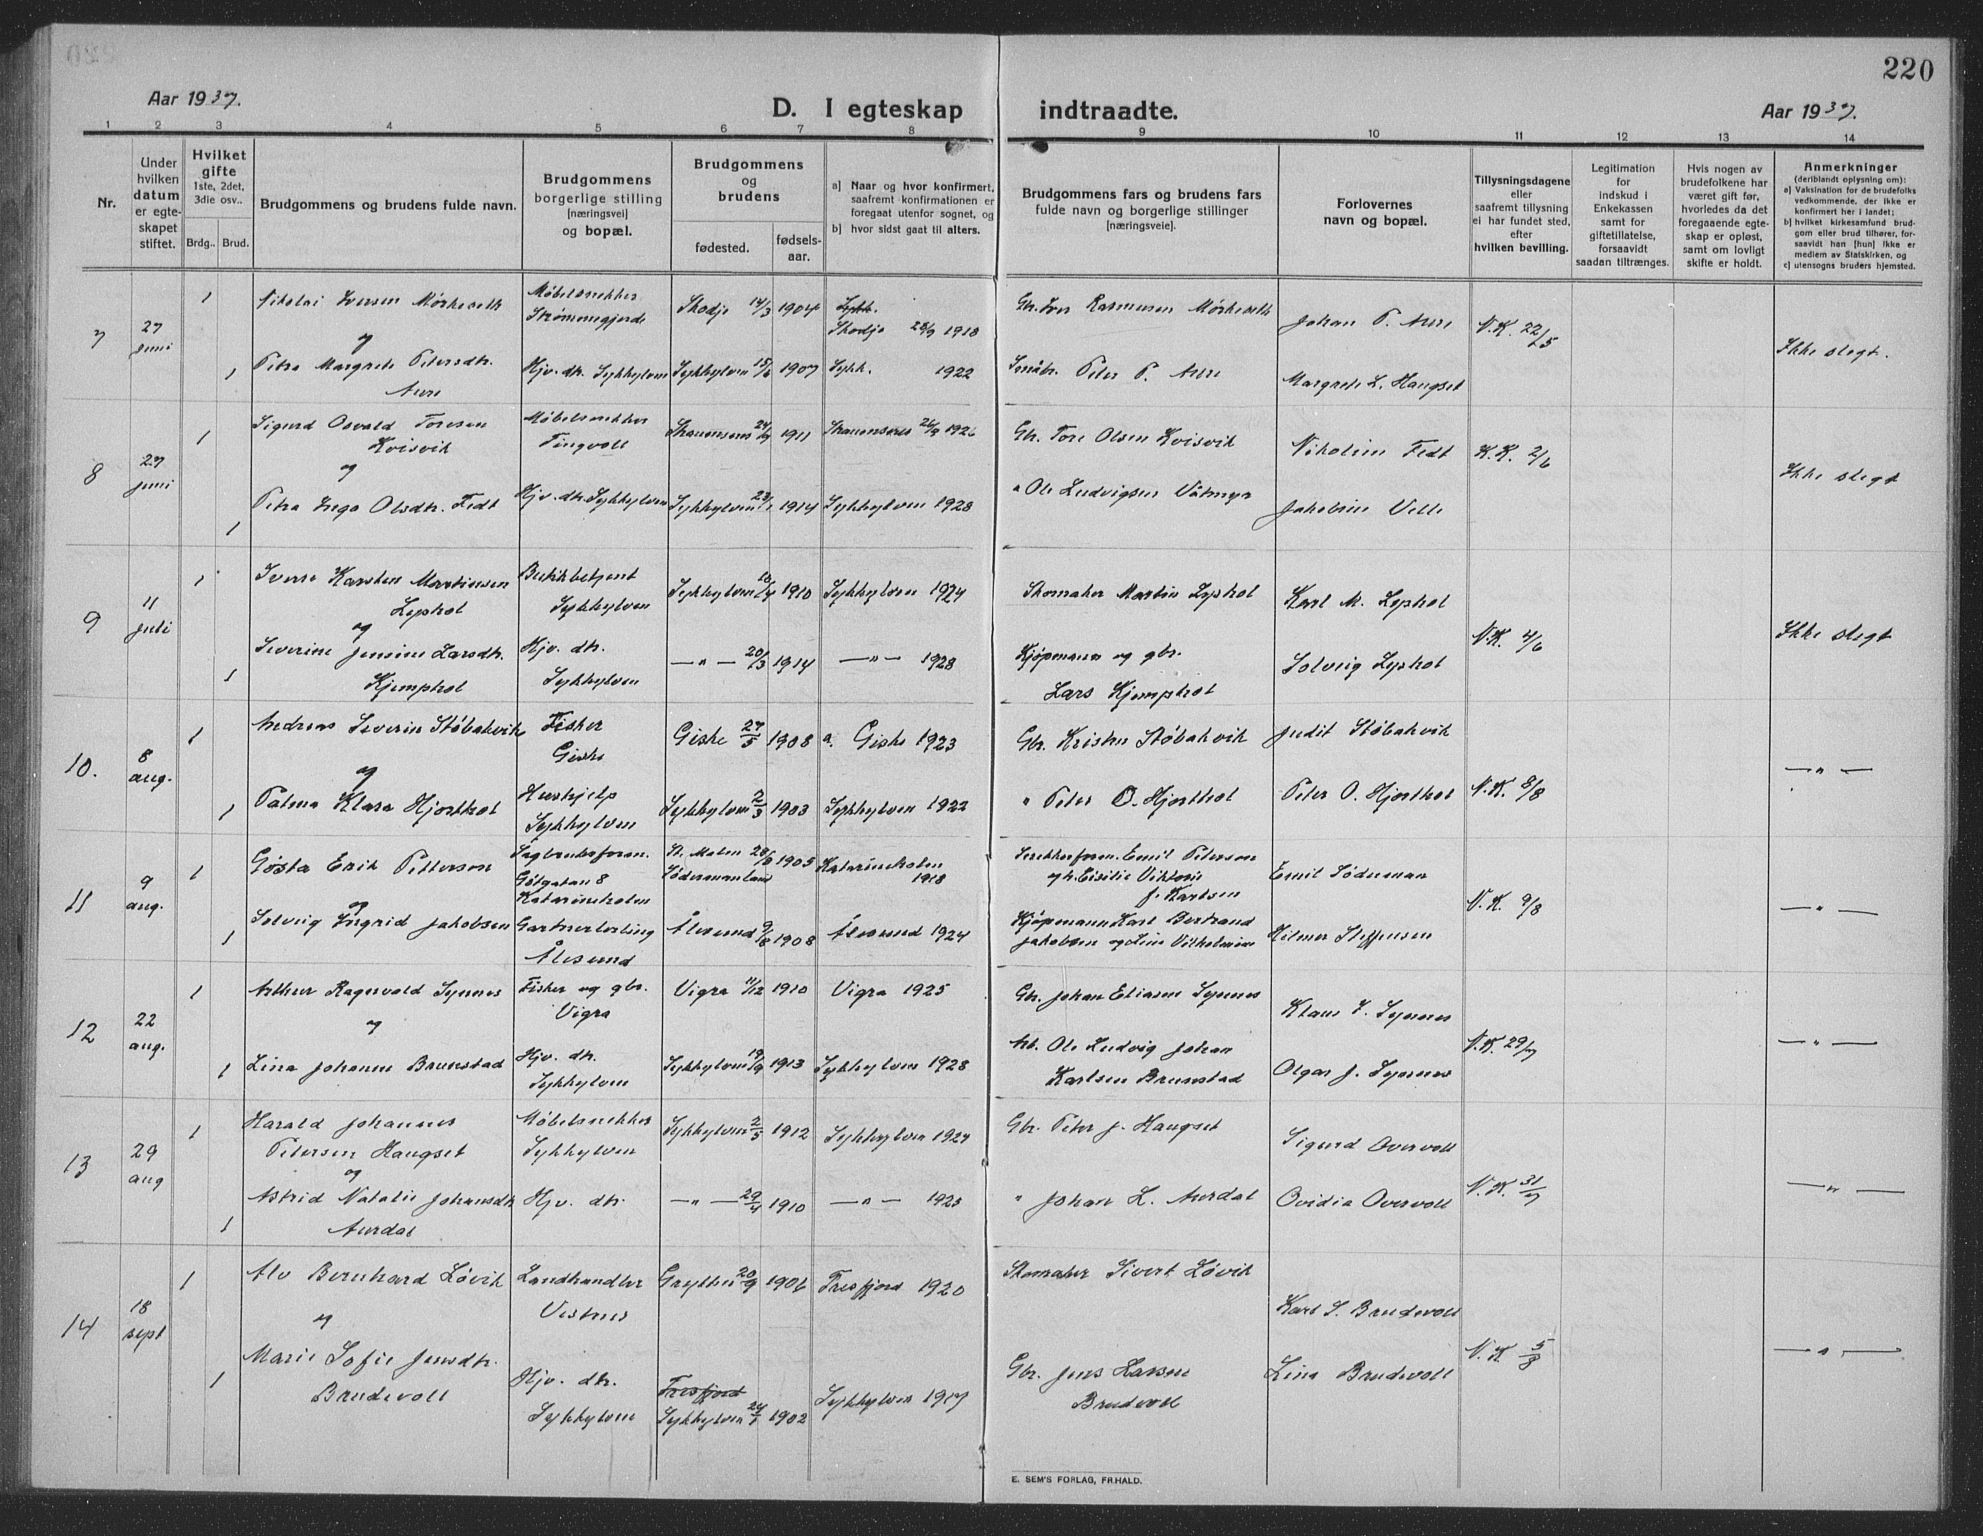 220
Aar 1937.
D. I egteskap indtraadte.
Aar 1937.
1 2 3 4 5 6 7 8 9 10 11 12 13 14
Nr.
Under hvilken datum er egte-skapet stiftet.
Hvilket gifte 1ste, 2det, 3die osv..
Brdg.. Brud.
Brudgommens og brudens fulde navn.
Brudgommens borgerlige stilling [næringsvei] og bopæl.
Brudgommens og brudens
fødested. fødsels-aar.
a] Naar og hvor konfirmert, saafremt konfirmationen er foregaat utenfor sognet, og
b] hvor sidst gaat til alters.
Brudgommens fars og brudens fars fulde navn og borgerlige stillinger [næringsveie].
Forlovernes navn og bopæl.
Tillysningsdagene eller saafremt tillysning ei har fundet sted, efter hvilken bevilling.
Legitimation for indskud i Enkekassen samt for giftetillatelse, forsaavidt saadan tiltrænges.
Hvis nogen av brudefolkene har været gift før, hvorledes da det foregaaende egte-skap er opløst, samt om lovligt skifte er holdt.
Anmerkninger (deriblandt oplysning om):
a) Vaksination for de brudefolks vedkommende, der ikke er konfirmert her i landet;
b) hvilket kirkesamfund brud-gom eller brud tilhører, for-saavidt han [hun] ikke er medlem av Statskirken, og
c) utensogns bruders hjemsted.
7 27 juni
1 Nikolai Iversen Mørkeseth Møbelsnekker Strømmegjerde Skodje 14/3 1904 Sykk. Skodje 28/9 1918 Gbr. Iver Rasmussen Mørkeseth Johan P. Aure N.K. 22/5
og
1 Petra Margrete Petersdtr. Aure Hjv. dtr. Sykkylven Sykkylven 15/6 1907 Sykk. 1922 Småbr. Peter P. Aure Margrete L. Haugset Ikke slegt.
8 27 juni
1 Sigurd Osvald Toresen Kvisvik Møbelsnekker Tingvoll 24/9 1911 26/9 1926 Gbr. Tore Olsen Kvisvik Nikoline Fedt K.K. 2/6
og
1 Petra Inga Olsdtr. Fedt Hjv. dtr. Sykkylven Sykkylven 1914 Sykkylven 1928 " Ole Ludvigsen Våtmyr Jakobine Velle Ikke slegt
9 11 juli
1 Sverre Karsten Martinsen Lyshol Butikkbetjent Sykkylven Sykkylven 18/4 1910 Sykkylven 1924 Skomaker Martin Lyshol Karl M. Lyshol
og
1 Severine Jensine Larsdtr. Kjemphol Hjv. dtr. Sykkylven —"— 20/3 1914 —"— 1928 Kjøpmann og gbr. Lars Kjemphol Solveig Lyshol N.K. 4/6 Ikke slegt
10. 8 aug.
1 Andreas Severin Støbakvik Fisker Giske Giske 27/5 1908 a. Giske 1923 Gbr. Kristen Støbakvik Judit Støbakvik
og
1 Palma Klara Hjorthol Hushjelp Sykkylven Sykkylven 2/3 1903 Sykkylven 1922 " Peter O. Hjorthol Peter O. Hjorthol N.K. 8/8 —"—
11 9 aug.
1 Gösta Erik Petterson Götgatan 8 Katarineholm St. Malm Södermanland 1905 Katarineholm 1918 Emil Peterson og h. Cisilie Viktoria J. Karlsen Emil Söderman
og
1 Solveig Ingrid Jakobsen Gartnerlerling Ålesund Ålesund 9/8 1908 Ålesund 1924 Kjøpmann Karl Bertrand Jakobsen og Line Vilhelmine Hilmer Steffensen N.K. 9/8 —"—
12 22 aug.
1 Arthur Ragnvald Synnes Fisker og gbr. Vigra Vigra 11/12 1910 Vigra 1925 Gbr. Johan Eliasen Synnes Klaus J. Synnes
og
1 Lina Johanne Brunstad Hjv. dtr. Sykkylven Sykkylven 19/9 1913 Sykkylven 1928 Arb. Ole Ludvig Johan Karlsen Brunstad Olgar J. Synnes N.K. 29/7 —"—
13 29 aug
1 Harald Johannes Petersen Haugset Møbelsnekker Sykkylven Sykkylven 2/5 1912 Sykkylven 1927 Gbr. Peter J. Haugset Sigurd Overvoll
og
1 Astrid Natalie Johansdtr. Aurdal Hjv. dtr. —"— 29/4 1910 —"— 1925 " Johan L. Aurdal Ovidia Overvoll N.K. 31/7 —"—
14 18 sept
1 Alv Bernhard Løvik Landhandler Vestnes Grytten 20/9 1906 Tresfjord 1920 Skomaker Sivert Løvik Karl S. Brudevoll
og
1 Marie Sofie Jensdtr. Brudevoll Hjv. dtr. Sykkylven Tresfjord Sykkylven 24/1 1902 Sykkylven 1917 Gbr. Jens Larsen Brudevoll Lina Brudevoll N.K. 5/8 —"—
E. SEM'S FORLAG, FR.HALD.